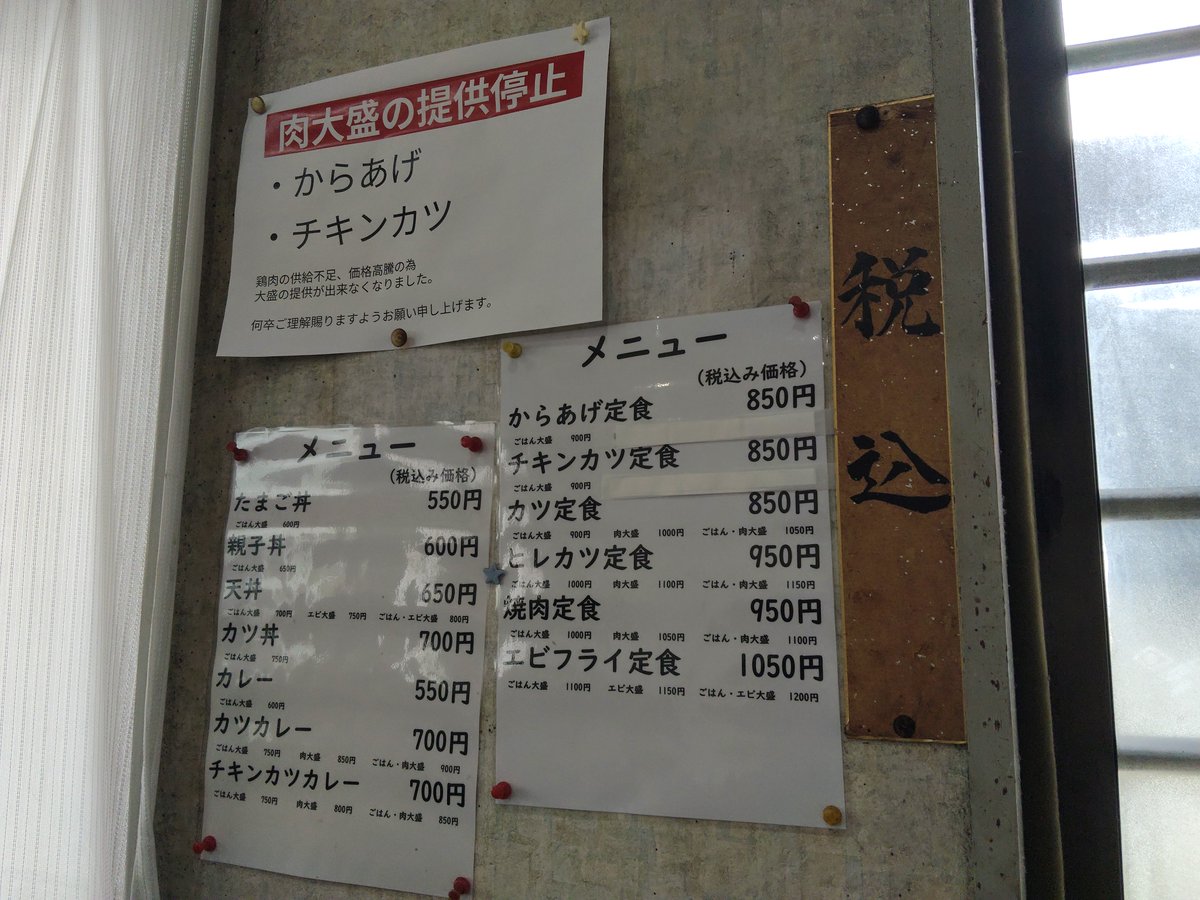 肉大盛の提供停止
・からあげ
・チキンカツ
鶏肉の供給不足、価格高騰の為
大盛の提供が出来なくなりました。
何卒ご理解賜りますようお願い申し上げます。
メニュー
(税込み価格)
たまご丼 550円
ごはん大盛 600円
親子丼 600円
ごはん大盛 650円
天丼 650円
ごはん大盛 700円 エビ大盛 750円 ごはん・エビ大盛 800円
カツ丼 700円
ごはん大盛 750円
カレー 550円
ごはん大盛 600円
カツカレー 700円
ごはん大盛 750円 肉大盛 850円 ごはん・肉大盛 900円
チキンカツカレー 700円
ごはん大盛 750円 肉大盛 800円 ごはん・肉大盛 850円
メニュー
(税込み価格)
からあげ定食 850円
ごはん大盛 900円
チキンカツ定食 850円
ごはん大盛 900円
カツ定食 850円
ごはん大盛 900円 肉大盛 1000円 ごはん・肉大盛 1050円
ヒレカツ定食 950円
ごはん大盛 1000円 肉大盛 1100円 ごはん・肉大盛 1150円
焼肉定食 950円
ごはん大盛 1000円 肉大盛 1050円 ごはん・肉大盛 1100円
エビフライ定食 1050円
ごはん大盛 1100円 エビ大盛 1150円 ごはん・エビ大盛 1200円
税込